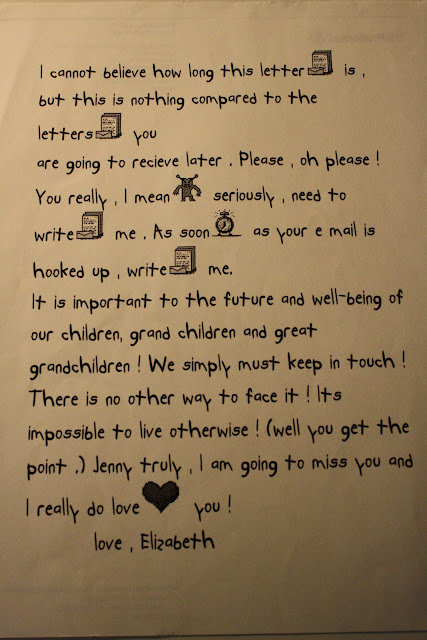 I cannot believe how long this letter is ,
but this is nothing compared to the
letters you
are going to recieve later . Please , oh please !
You really , I mean seriously , need to
write me . As soon as your e mail is
hooked up , write me.
It is important to the future and well-being of
our children, grand children and great
grandchildren ! We simply must keep in touch !
There is no other way to face it ! Its
impossible to live otherwise ! (well you get the
point .) Jenny truly , I am going to miss you and
I really do love you !
love , Elizabeth